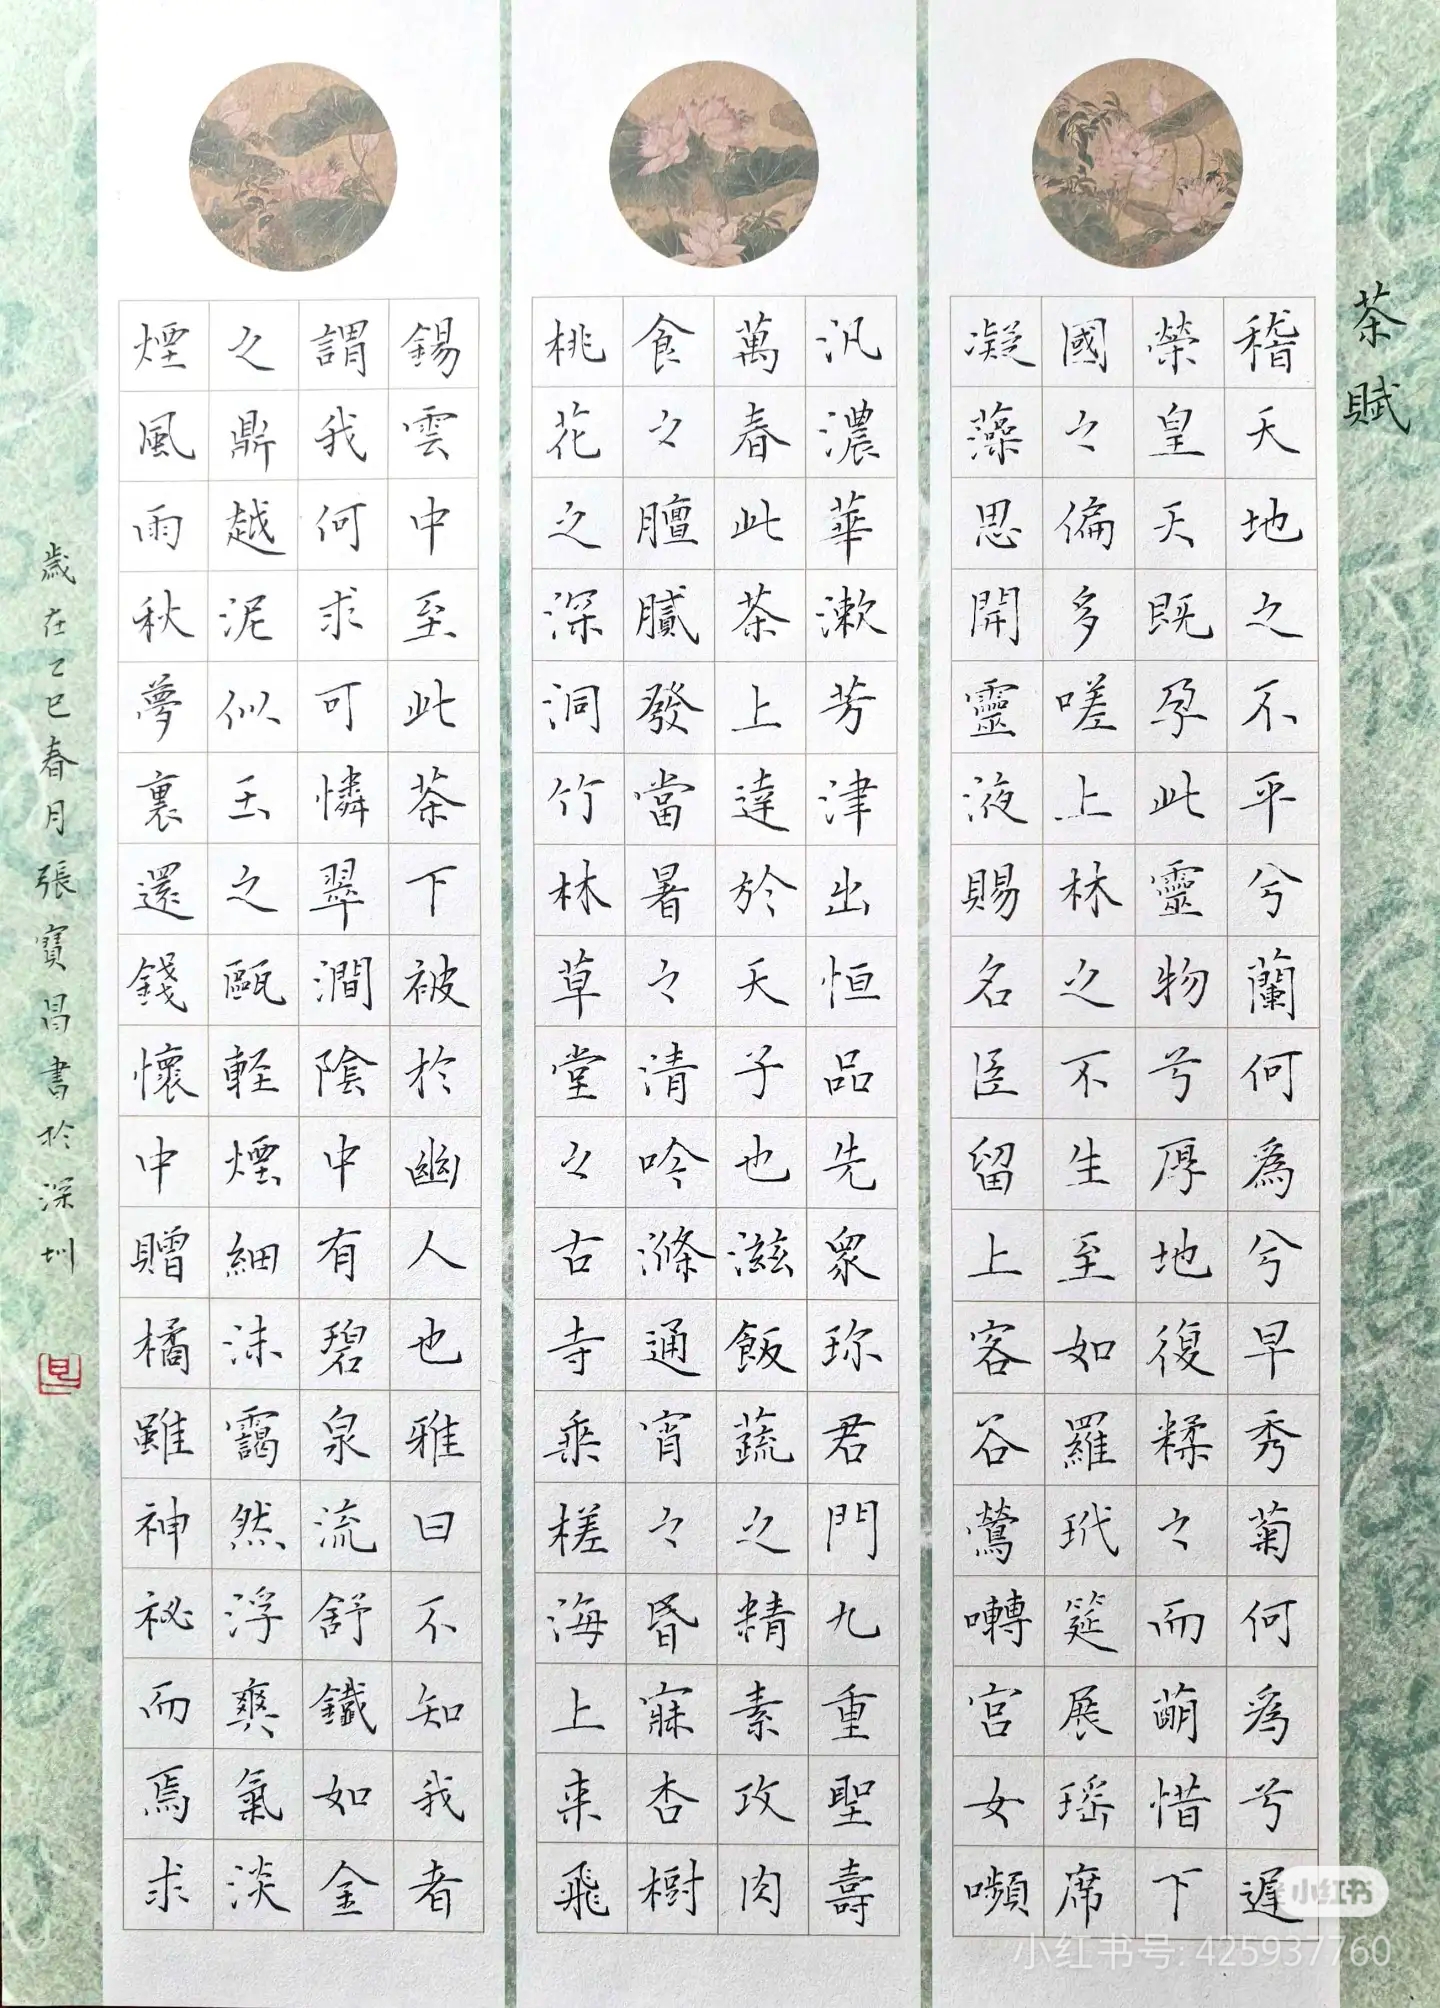 茶賦
稽天地之不平兮蘭何為兮早秀菊何為兮遲
榮皇天既孕此靈物兮厚地復糅之而萌惜下
國之偏多嗟上林之不生至如羅玳筵展瑤席
凝藻思開靈液賜名臣留上客谷鶯囀宮女嚬
汎濃華漱芳津出恒品先衆珎君門九重聖壽
萬春此茶上達於天子也滋飯蔬之精素攻肉
食之膻膩發當暑之清吟滌通宵之昏寐杏樹
桃花之深洞竹林草堂之古寺乘槎海上来飛
錫雲中至此茶下被於幽人也雅曰不知我者
謂我何求可憐翠澗陰中有碧泉流舒鐵如金
之鼎越泥似玉之甌輕煙細沫靄然浮爽氣淡
煙風雨秋夢裏還錢懷中贈橘雖神祕而焉求
歲在乙巳春月張寶昌書於深圳
小红书
小红书号: 425937760